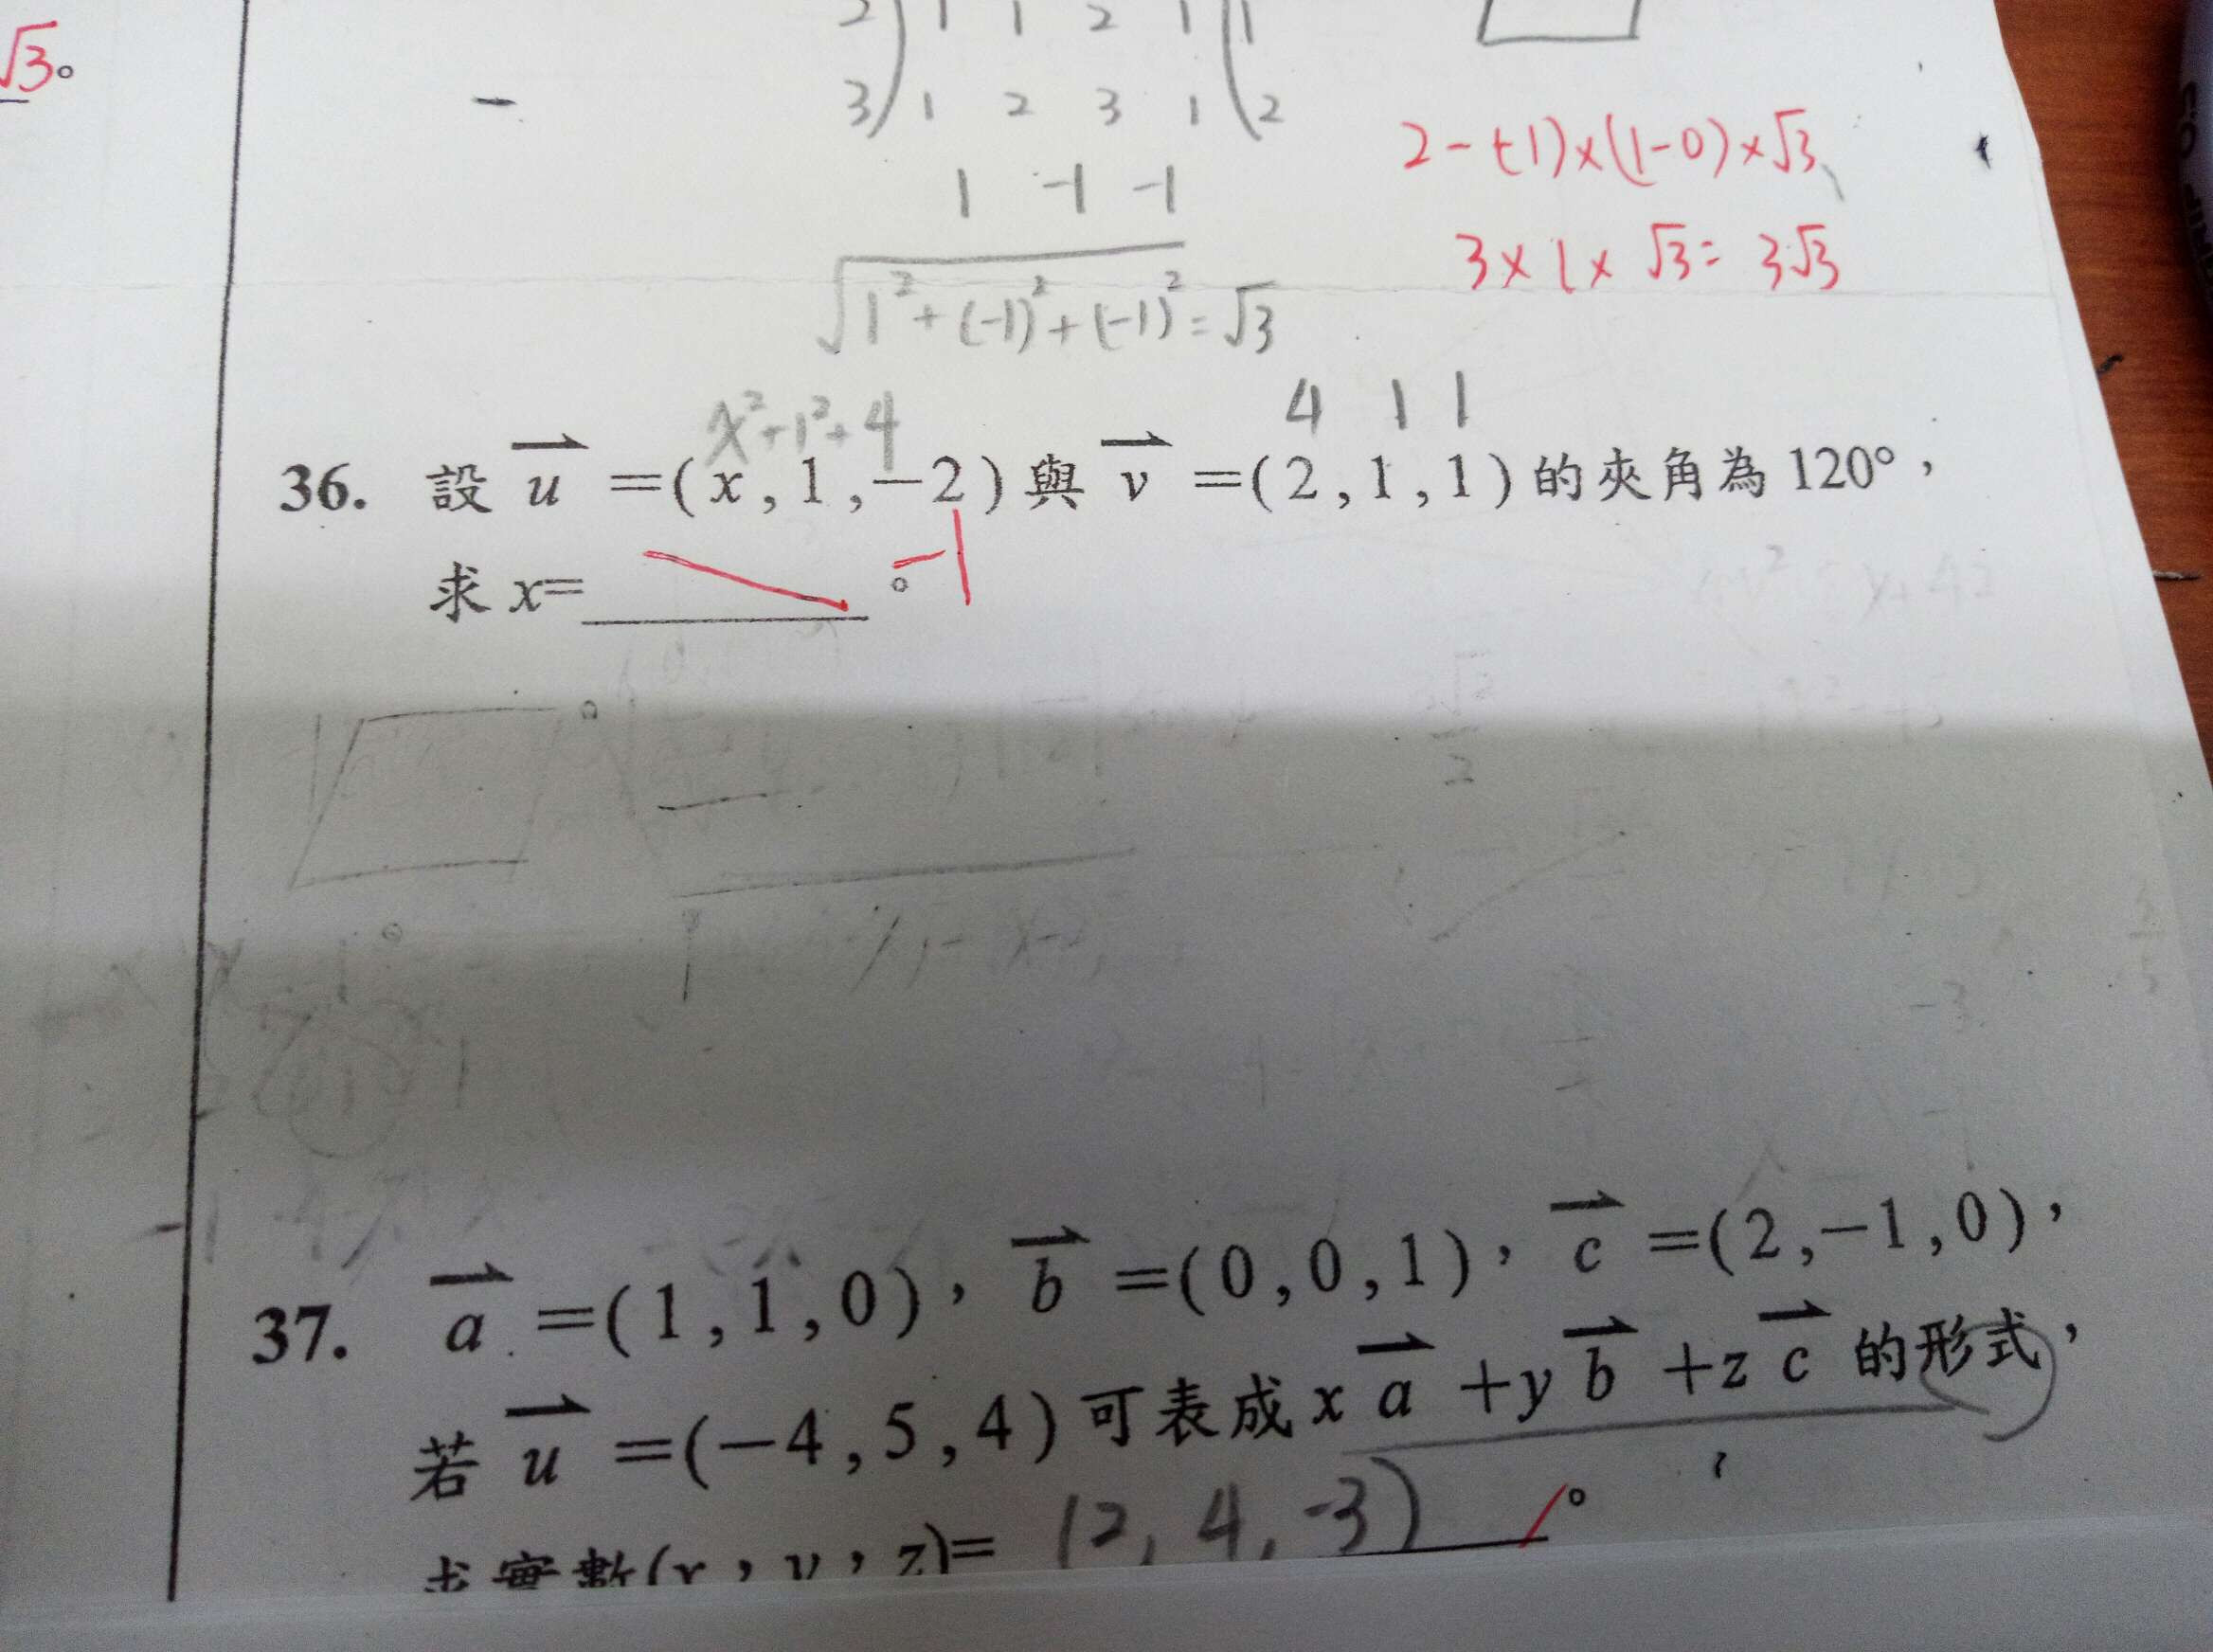 √3。
2 1 1 2 1 1
3 1 2 3 1 2
1 -1 -1
√1²+(-1)²+(-1)²=√3
2-(-1)×(1-0)×√3
3×1×√3=3√3
x²+1²+4
4 1 1
36. 設 u =(x,1,-2)與 v =(2,1,1)的夾角為120°,
求 x= 。
-1
37. a =(1,1,0), b =(0,0,1), c =(2,-1,0),
若 u =(-4,5,4)可表成 x a +y b +z c 的形式,
求實數(x,y,z)= (2, 4, -3) 。